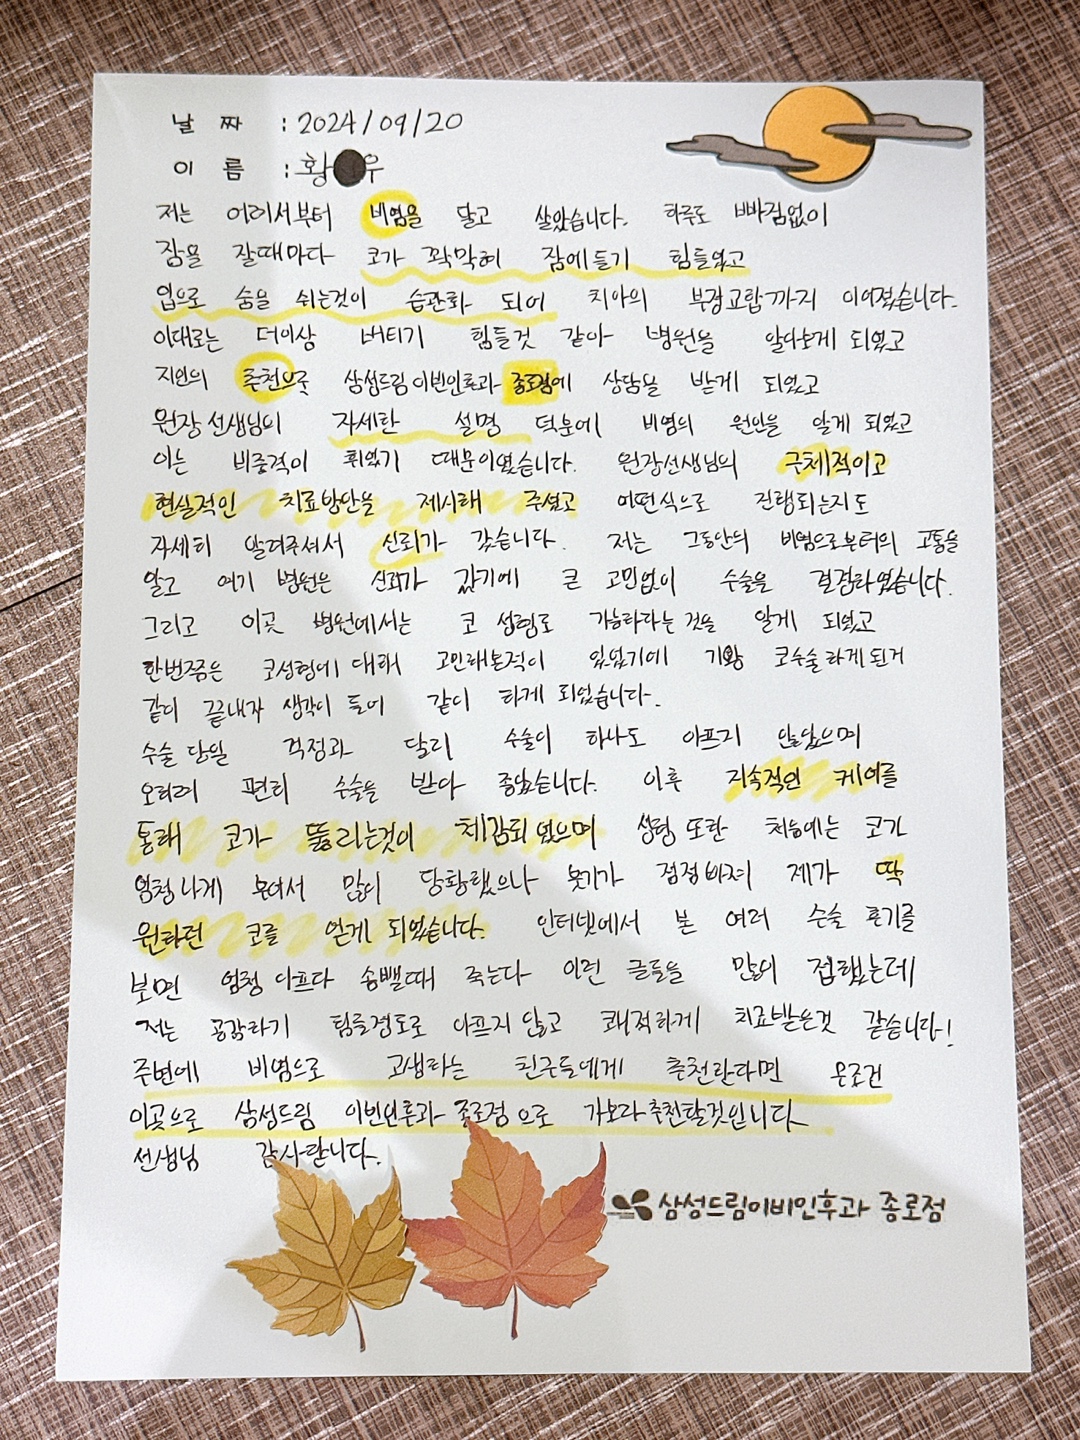 날 짜 : 2024/09/20
이 름 : 황 우
저는 어려서부터 비염을 달고 살았습니다. 하루도 빠짐없이
잠을 잘때마다 코가 꽉막혀 잠에들기 힘들었고
입으로 숨을 쉬는것이 습관화 되어 치아의 부정교합까지 이어졌습니다.
이대로는 더이상 버티기 힘들것 같아 병원을 알아보게 되었고
지인의 추천으로 삼성드림이비인후과 종로점에 상담을 받게 되었고
원장선생님의 자세한 설명 덕분에 비염의 원인을 알게 되었고
이는 비중격이 휘었기 때문이었습니다. 원장선생님의 구체적이고
현실적인 치료방안을 제시해 주셨고 어떤식으로 진행되는지도
자세히 알려주셔서 신뢰가 갔습니다. 저는 그동안의 비염으로부터의 고통을
알고 여기 병원은 신뢰가 갔기에 큰 고민없이 수술을 결정하였습니다.
그리고 이곳 병원에서는 코 성형도 가능하다는 것을 알게 되었고
한번쯤은 코성형에 대해 고민해본적이 있었기에 기왕 코수술하게된거
같이 끝내자 생각이 들어 같이 하게 되었습니다.
수술 당일 걱정과 달리 수술이 하나도 아프지 않았으며
오히려 편히 수술을 받아 좋았습니다. 이후 지속적인 케어를
통해 코가 뚫리는것이 체감되었으며 성형 또한 처음에는 코가
엄청나게 부어서 많이 당황했으나 붓기가 점점 빠져 제가 딱
원하던 코를 얻게 되었습니다. 인터넷에서 본 여러 수술 후기를
보면 엄청 아프다 솜뺄때 죽는다 이런 글들을 많이 접했는데
저는 공감하기 힘들정도로 아프지 않고 쾌적하게 치료받은것 같습니다!
주변에 비염으로 고생하는 친구들에게 추천한다면 무조건
이곳으로 삼성드림 이비인후과 종로점으로 가보라 추천할것입니다.
선생님 감사합니다.
삼성드림이비인후과 종로점